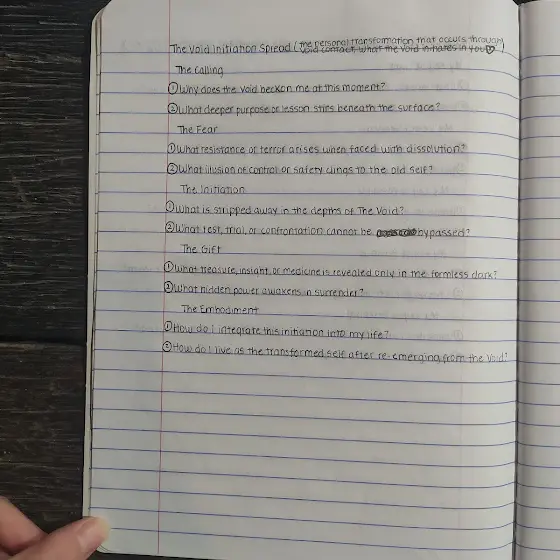 The Void Initiation Spread (the personal transformation that occurs through
void contact, what the void initiates in you♡)
The Calling
① Why does the void beckon me at this moment?
② What deeper purpose or lesson stirs beneath the surface?
The Fear
① What resistance or terror arises when faced with dissolution?
② What illusion of control or safety clings to the old self?
The Initiation
① What is stripped away in the depths of The Void?
② What test, trial, or confrontation cannot be bypassed?
The Gift
① What treasure, insight, or medicine is revealed only in the formless dark?
② What hidden power awakens in surrender?
The Embodiment
① How do I integrate this initiation into my life?
② How do I live as the transformed self after re-emerging from the void?